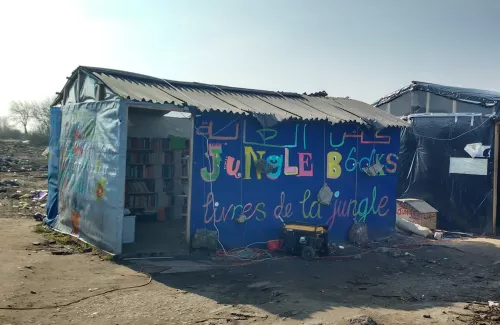 JUNGLE BOOKS
livres de la jungle